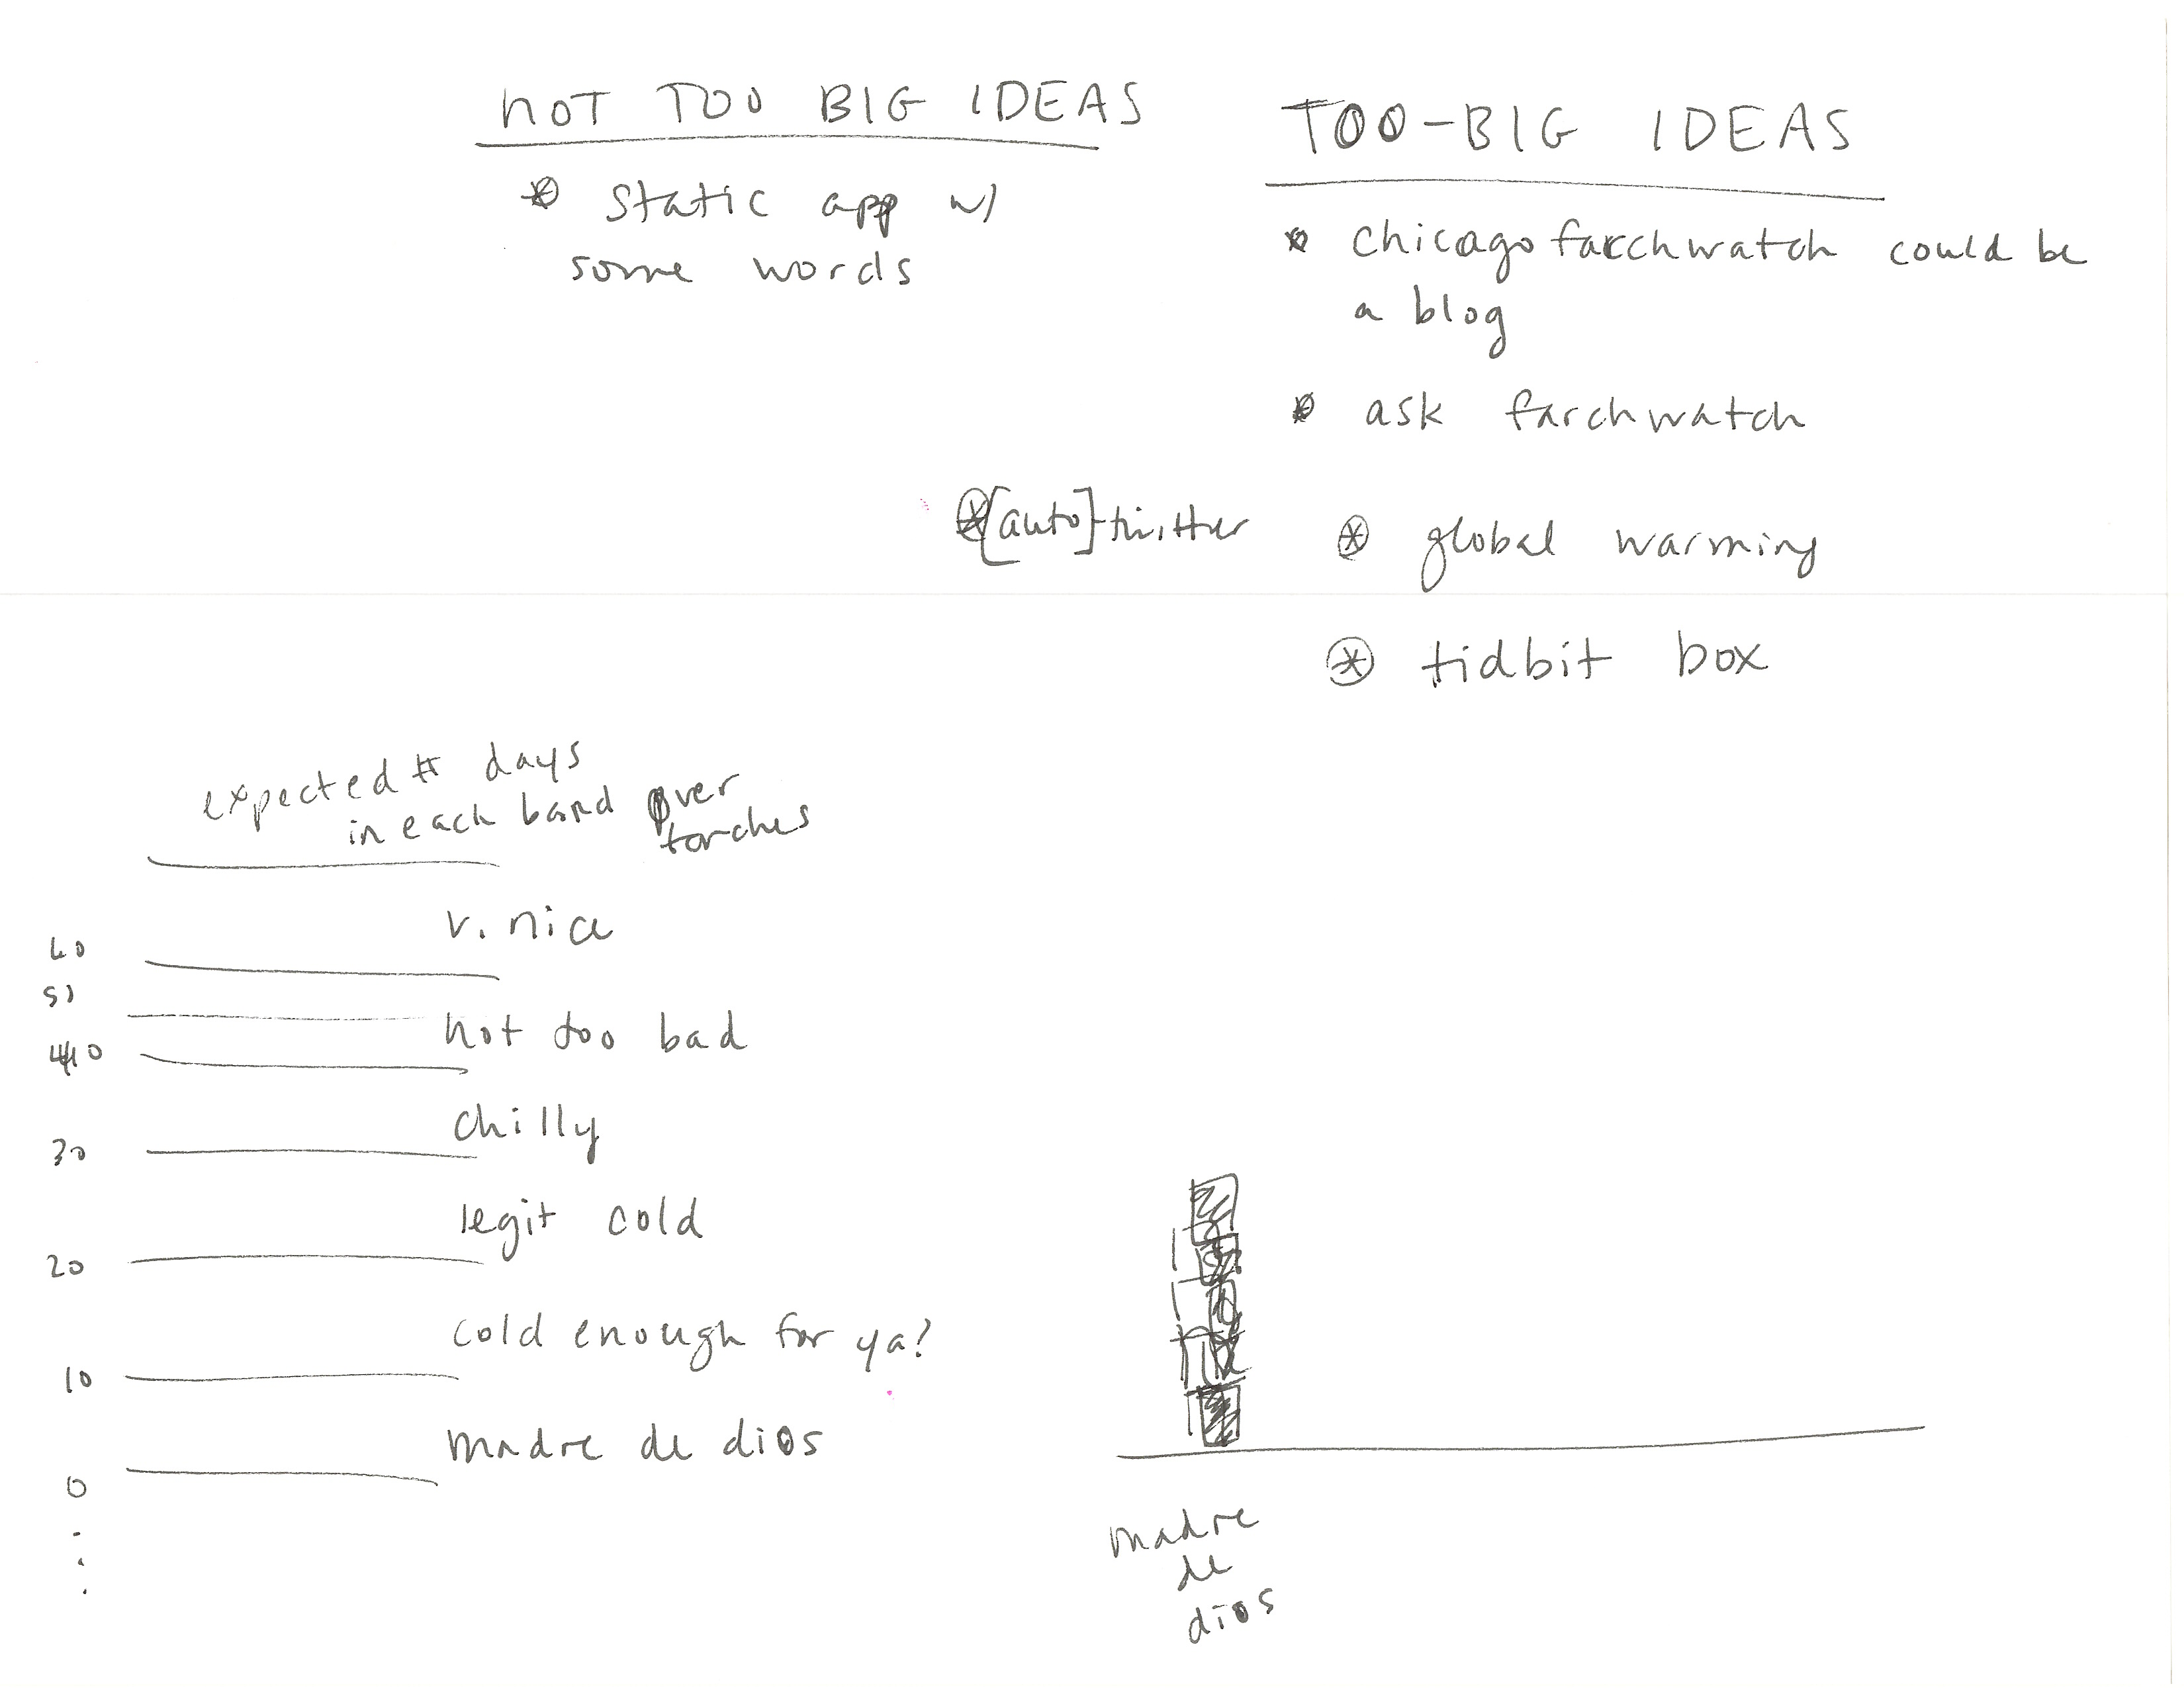 NOT TOO BIG IDEAS
static app w/
some words
TOO-BIG IDEAS
chicagofarchwatch could be
a blog
ask farchwatch
[auto] twitter
global warming
tidbit box
expected # days
in each band over
farches
v. nice
60
50
not too bad
40
chilly
30
legit cold
20
cold enough for ya?
10
madre de dios
0
madre
de
dios